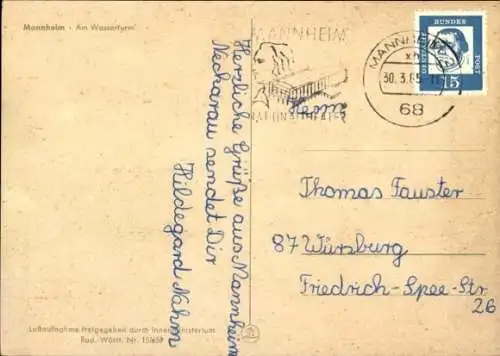 Mannheim - Am Wasserturm
Herzliche Grüße aus Mannheim
Neckarau sendet Dir
Hildegard Nahm
Luftaufnahme freigegeben durch Innenministerium
Bad.-Württ. Nr.
MANNHEIM
NATIONALTHEATER
MANNHEIM
30. 3. 65
68
BUNDES
POST
15
Herrn
Thomas Fauster
87 Würzburg
Friedrich-Spee-Str
26